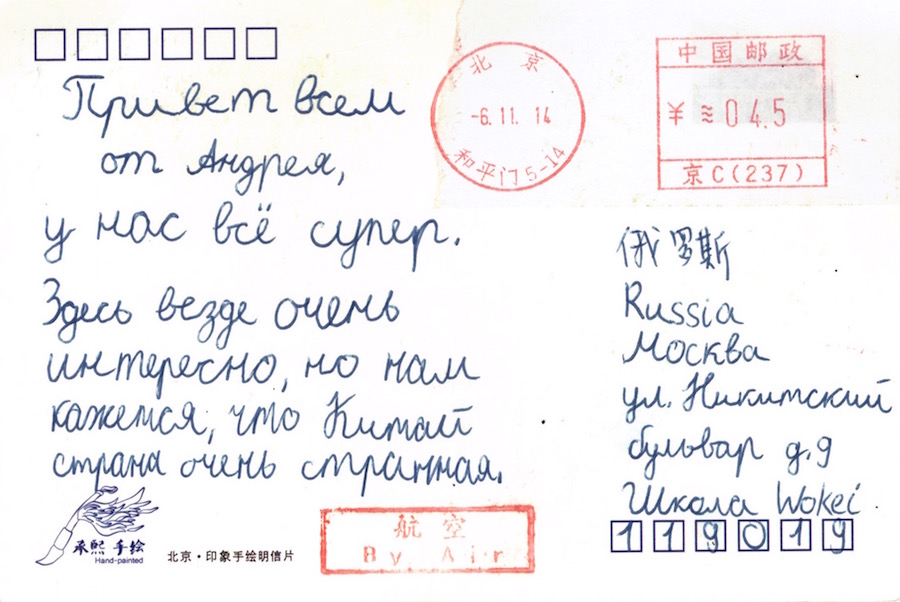 Привет всем
от Андрея,
у нас всё супер.
Здесь везде очень
интересно, но нам
кажется, что Китай
страна очень странная.
承熙 手绘
Hand-painted
北京·印象手绘明信片
航空
By Air
北京
-6.11.14
和平门5-14
中国邮政
¥≈04.5
京C(237)
俄罗斯
Russia
Москва
ул. Никитский
бульвар д.9
Школа Wokei
119019